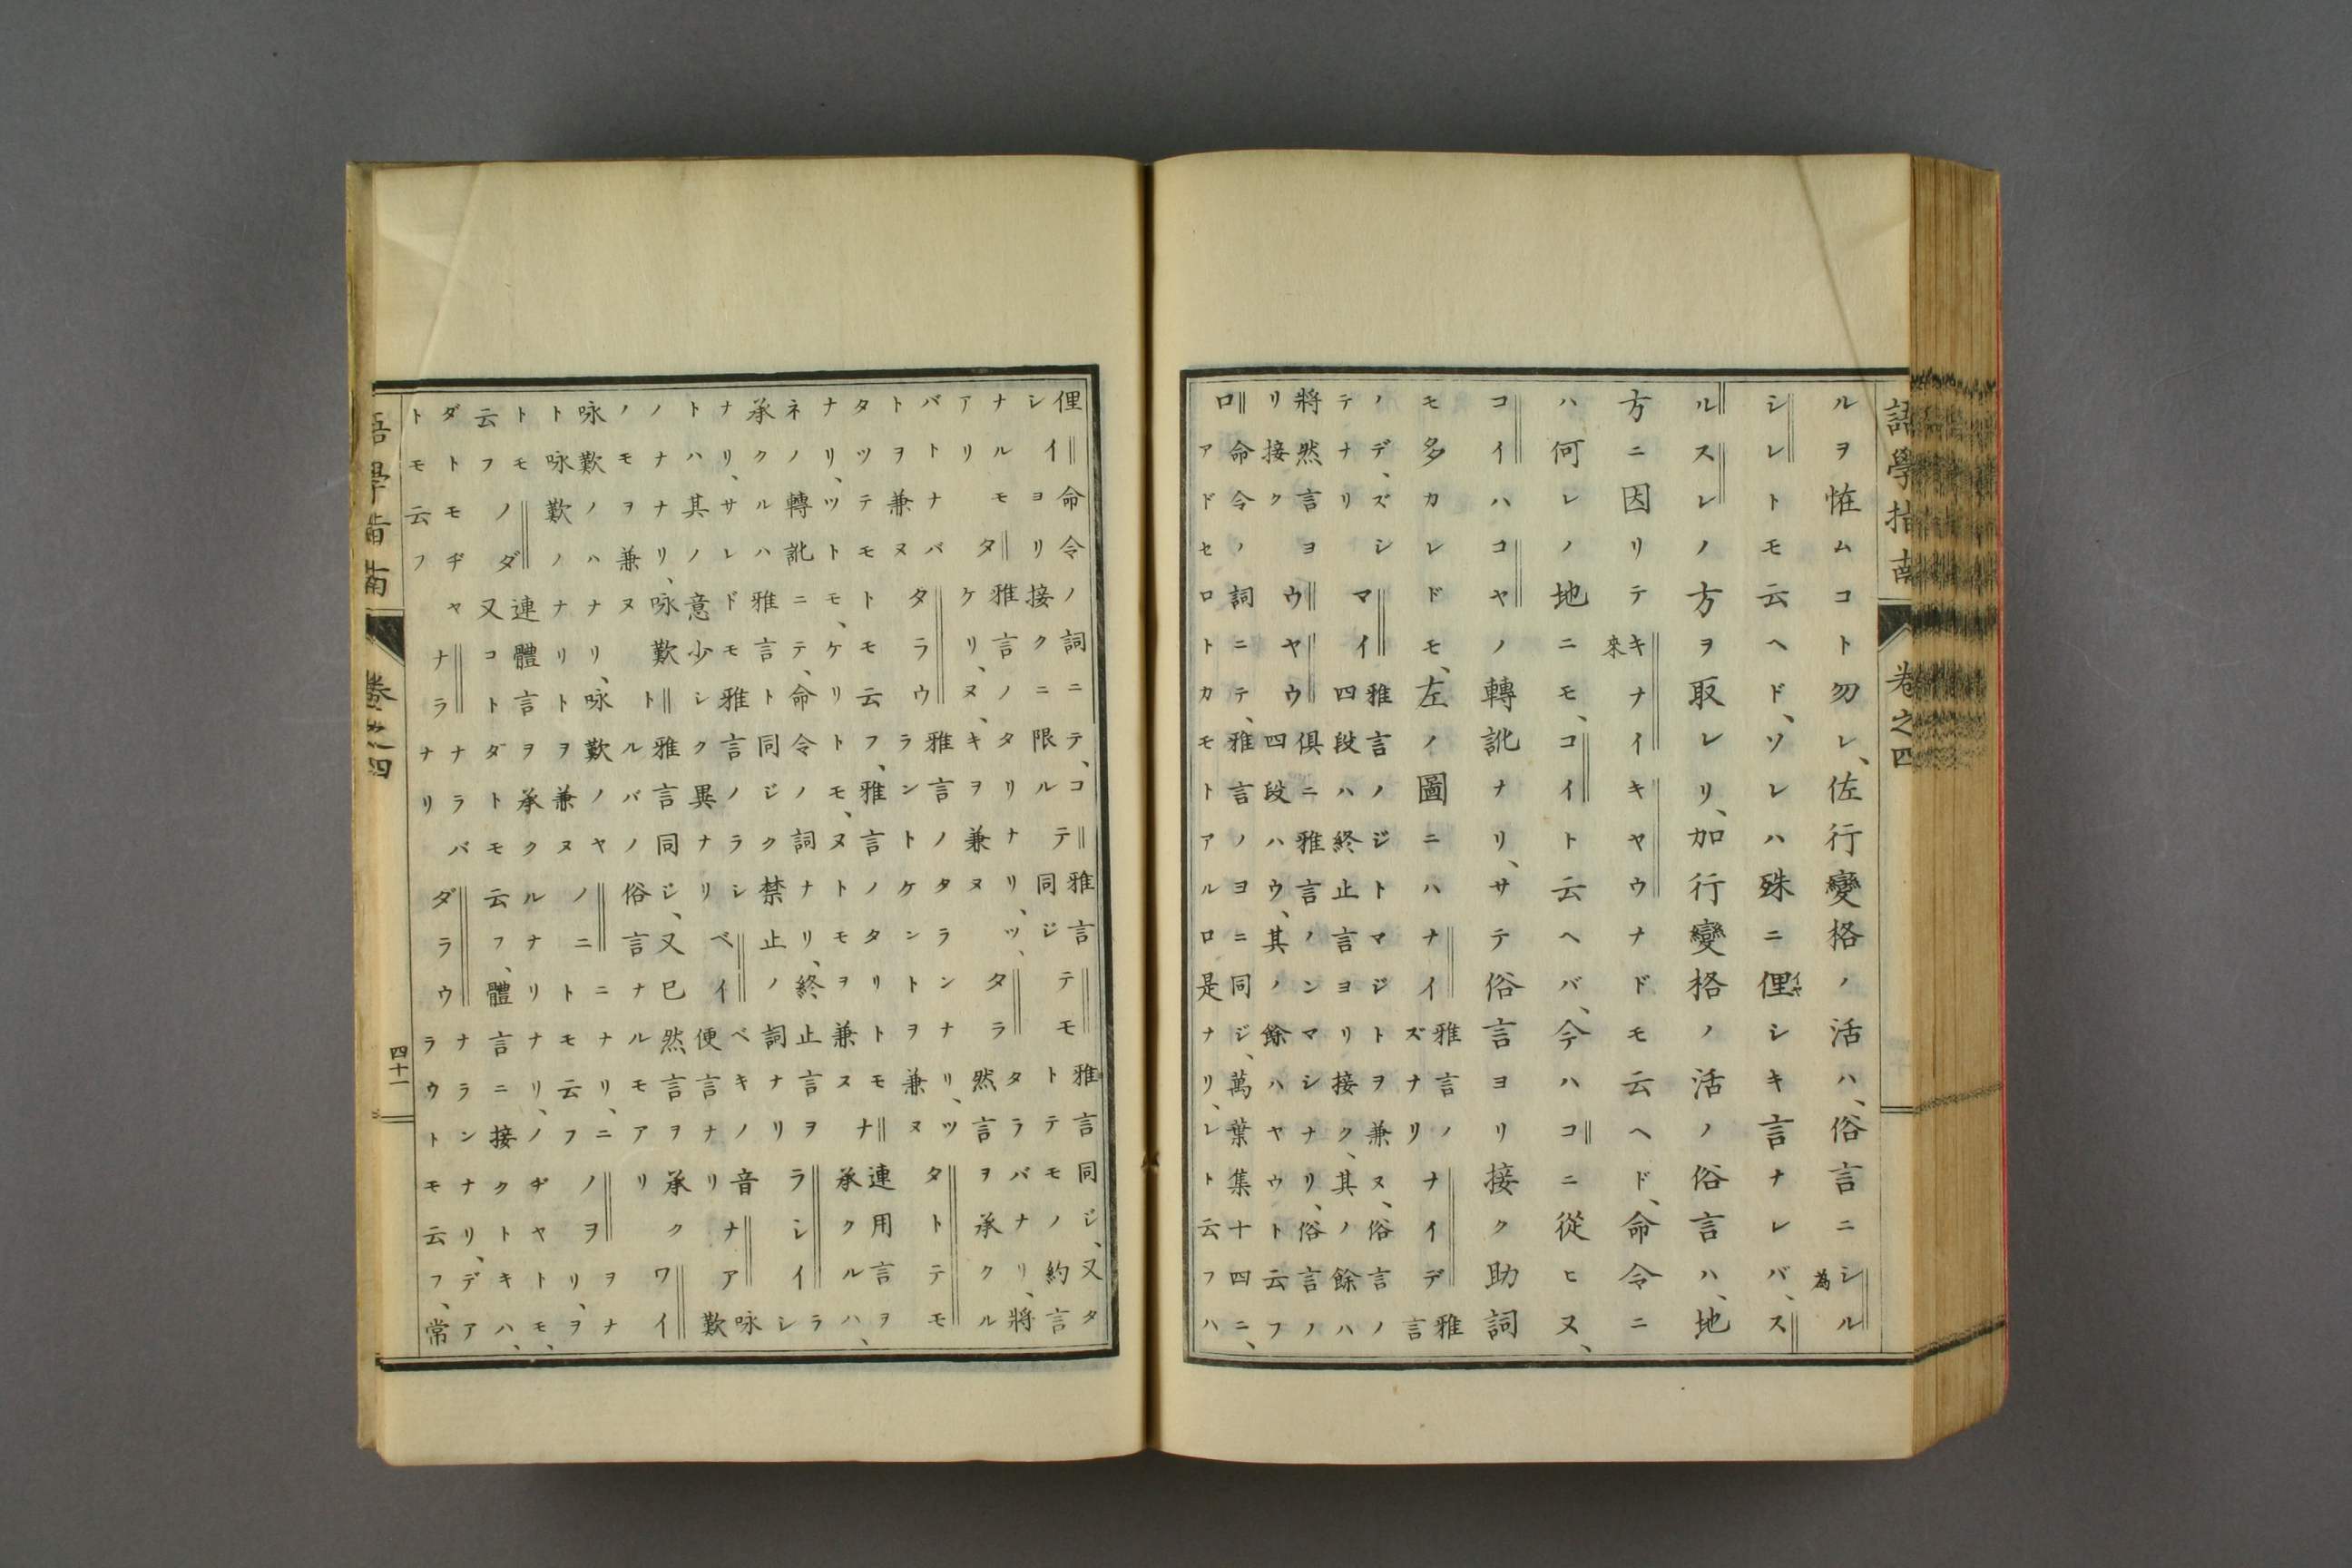 語學指南 卷之四
ルヲ恠ムコト勿レ、佐行變格ノ活ハ、俗言ニシル為
シレトモ云ヘド、ソレハ殊ニ俚イヤシキ言ナレバ、ス
ルスレノ方ヲ取レリ、加行變格ノ活ノ俗言ハ、地
方ニ因リテキ來ナイキヤウナドモ云ヘド、命令ニ
ハ何レノ地ニモ、コイト云ヘバ、今ハコニ從ヒヌ、
コイハコヤノ轉訛ナリ、サテ俗言ヨリ接ク助詞
モ多カレドモ、左ノ圖ニハナイ雅言ノズナリナイデ雅言
ノデ、ズシ マイ 雅言ノジトマジトヲ兼ヌ、俗言ノ
テナリ 四段ハ終止言ヨリ接ク、其ノ餘ハ
將然言ヨ ウヤウ 倶ニ雅言ノンマシナリ、俗言ノ
リ接ク 四段ハウ、其ノ餘ハヤウト云フ
ロ 命令ノ詞ニテ、雅言ノヨニ同ジ、萬葉集十四ニ、
アドセロトカモトアルロ是ナリ、レト云フハ
俚 イ 命令ノ詞ニテ、コ テ 雅言 テモ 雅言同ジ、又タ
シ ヨリ接クニ限ル 同ジ トテモノ約言
ナルモ タ 雅言ノタリナリ、ツ、 タラ タラバナリ、將
アリ ケリ、ヌ、キヲ兼ヌ 然言ヲ承クル
バトナバ タラウ 雅言ノタランナリ、ツ タトテモ
トヲ兼ヌ ラントケントヲ兼ヌ
タツテモトモ云フ、雅言ノタリトモ ナ 連用言ヲ
ナリ、ツトモ、ケリトモ、ヌトモヲ兼ヌ 承クルハ、
ネノ轉訛ニテ、命令ノ詞ナリ、終止言ヲ ラシイ ラシ
承クルハ雅言ト同ジク禁止ノ詞ナリ
ナリ、サレドモ雅言ノラシ ベイ ベキノ音 ナア 咏
トハ其ノ意少シク異ナリ 便言ナリ 歎
ノナナリ、咏歎 ト 雅言同ジ、又已然言ヲ承ク ワイ
ノモヲ兼ヌ ルバノ俗言ナルモアリ
咏歎ノハナリ、咏歎ノヤ ノニ ニナリ、ニ ノヲ ヲナ
ト咏歎ノナリトヲ兼ヌ トモ云フ リ、ヲ
トモ ノダ 連體言ヲ承クルナリナリ、ノヂヤトモ、
云フ 又コトダトモ云フ、體言ニ接クトキハ、
ダトモヂヤ ナラ ナラバ ダラウ ナランナリ、デア
トモ云フ ナリ ラウトモ云フ、常
語學指南 卷之四 四十一